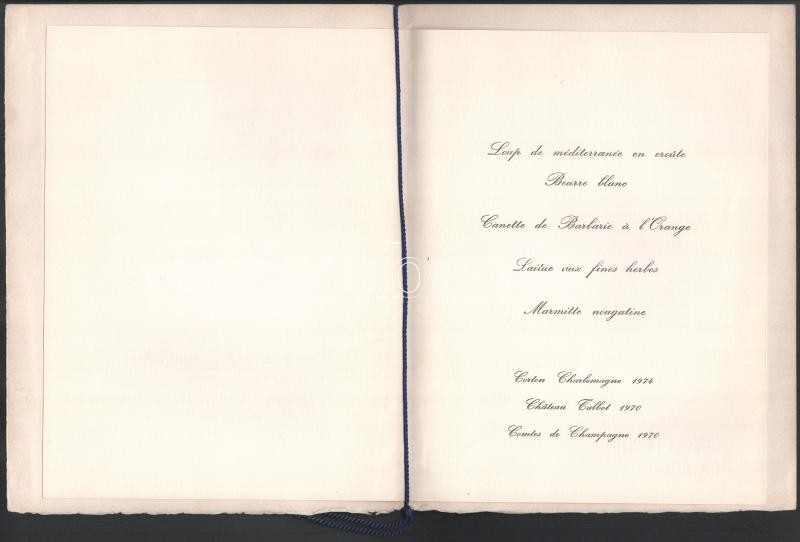 Loup de méditerranée en croûte
Beurre blanc
Canette de Barbarie à l'Orange
Laitue aux fines herbes
Marmitte nougatine
Corton Charlemagne 1974
Château Talbot 1970
Comtes de Champagne 1970